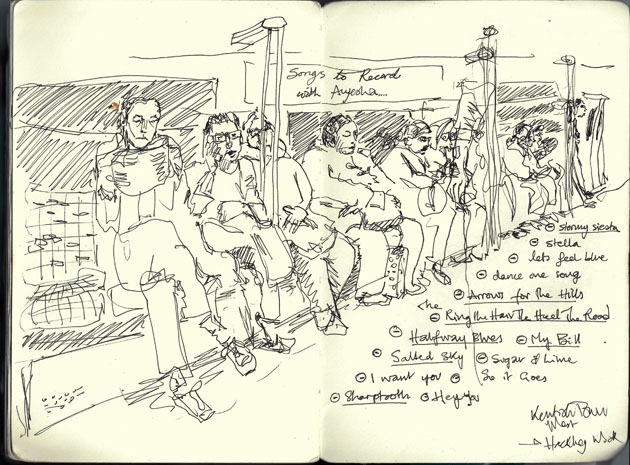 Songs to Record
with Ayesha....
stormy siesta
stella
lets feel blue
dance one song
Arrows for the Hills
the
Ring the Haw The Heel The Road
Halfway Blues
My Bill
Salted Sky
Sugar & Lime
I want you
So it Goes
Sharptooth
Hey you
Kentish Town
West
→ Hackney Wick